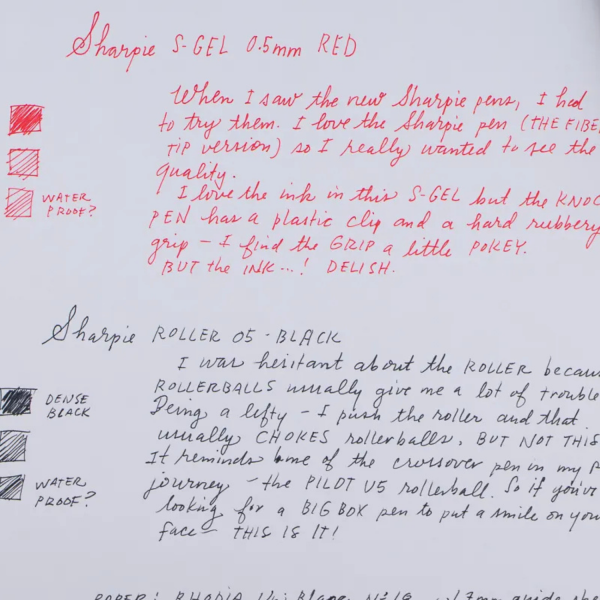 Sharpie S-GEL 0.5mm RED
When I saw the new Sharpie pens, I had
to try them. I love the Sharpie pen (THE FIBE
TIP version) so I really wanted to see the
quality.
I love the ink in this S-GEL but the KNOC
PEN has a plastic clip and a hard rubbery
grip - I find the GRIP a little POKEY.
BUT the INK...! DELISH.
WATER
PROOF?
Sharpie ROLLER 05 - BLACK
I was hesitant about the ROLLER becau
ROLLERBALLS usually give me a lot of trouble
Being a lefty - I push the roller and that
usually CHOKES rollerballs, BUT NOT THIS
It reminds me of the crossover pen in my P
journey - the PILOT V5 rollerball. So if you've
looking for a BIG BOX pen to put a smile on you
face - THIS IS IT!
DENSE
BLACK
WATER
PROOF?
PAPER: RHODIA